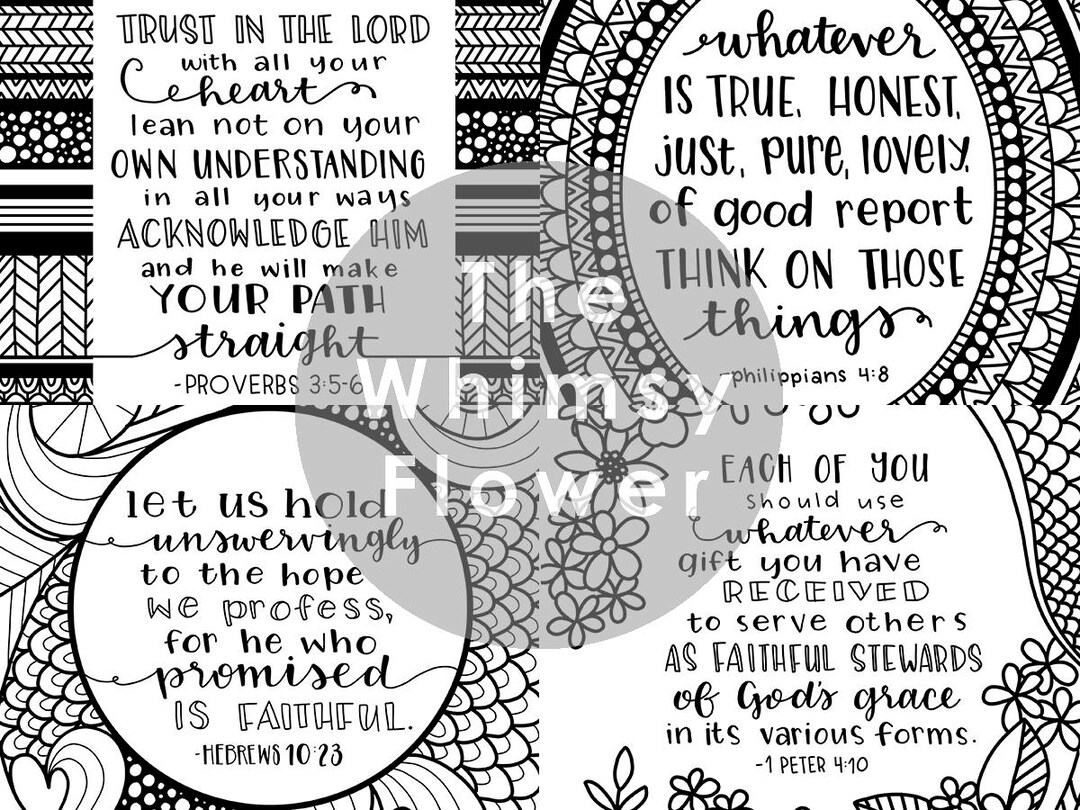 TRUST IN THE LORD
with all your
heart
lean not on your
OWN UNDERSTANDING
in all your ways
ACKNOWLEDGE HIM
and he will make
YOUR PATH
straight
-PROVERBS 3:5-6
whatever
IS TRUE, HONEST,
just, pure, lovely,
of good report
THINK ON THOSE
things
-philippians 4:8
let us hold
unswervingly
to the hope
we profess,
for he who
promised
IS FAITHFUL.
-HEBREWS 10:23
EACH OF YOU
should use
whatever
gift you have
RECEIVED
to serve others
AS FAITHFUL STEWARDS
of God's grace
in its various forms.
-1 PETER 4:10
The
Whimsy
Flower